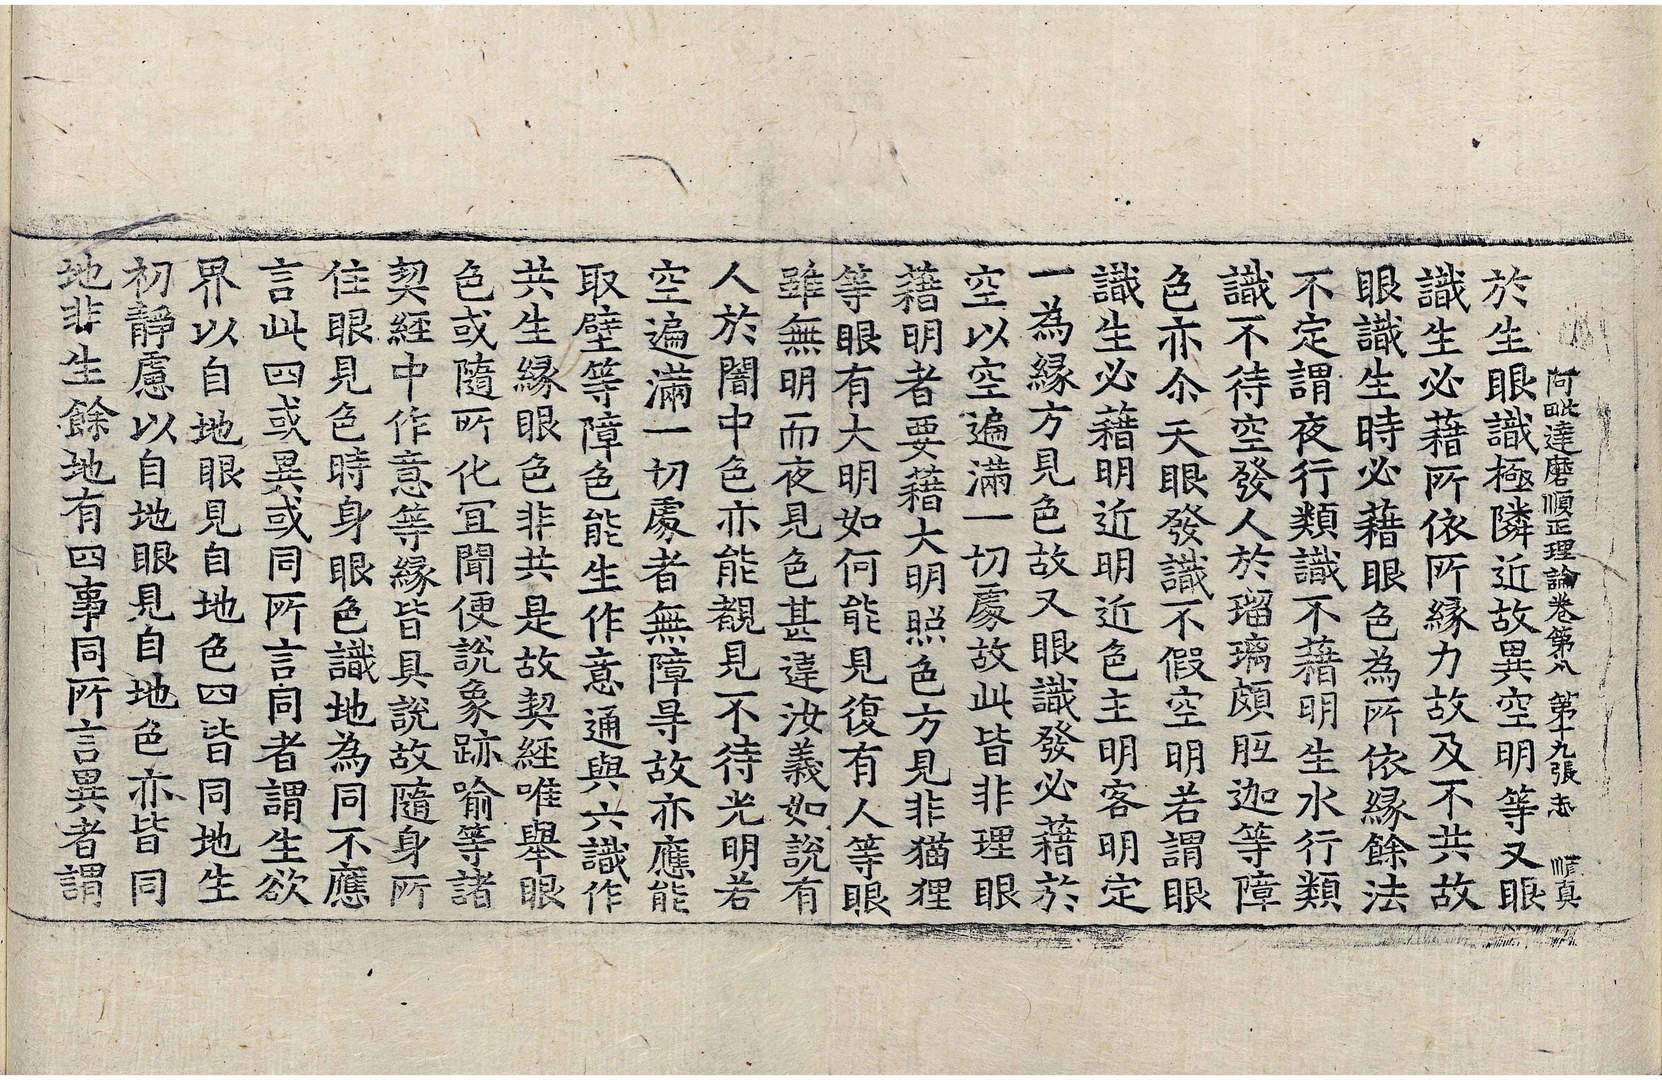 阿毗達磨順正理論卷第八　第十九張　志　修真
於生眼識極隣近故異空明等又眼
識生必藉所依所緣力故及不共故
眼識生時必藉眼色為所依緣餘法
不定謂夜行類識不藉明生水行類
識不待空發人於瑠璃頗胝迦等障
色亦尒天眼發識不假空明若謂眼
識生必藉明近明近色主明客明定
一為緣方見色故又眼識發必藉於
空以空遍滿一切處故此皆非理眼
藉明者要藉大明照色方見非猫狸
等眼有大明如何能見復有人等眼
雖無明而夜見色甚違汝義如說有
人於闇中色亦能覩見不待光明若
空遍滿一切處者無障㝵故亦應能
取壁等障色能生作意通與六識作
共生緣眼色非共是故契經唯舉眼
色或隨所化冝聞便說象跡喻等諸
契經中作意等緣皆具說故隨身所
住眼見色時身眼色識地為同不應
言此四或異或同所言同者謂生欲
界以自地眼見自地色四皆同地生
初靜慮以自地眼見自地色亦皆同
地非生餘地有四事同所言異者謂